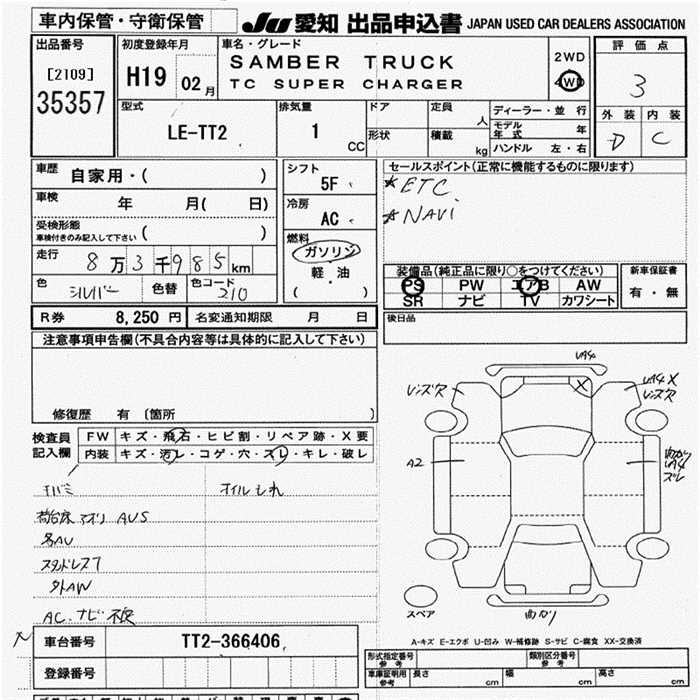 車内保管・守衛保管 JU 愛知 出品申込書 JAPAN USED CAR DEALERS ASSOCIATION
出品番号
[2109]
35357
初度登録年月
H19 02月
車名・グレード
SAMBER TRUCK
TC SUPER CHARGER
2WD
4WD
評価点
3
外装 内装
D C
型式
LE-TT2
排気量
1 CC
ドア
形状
定員 人
積載 kg
ディーラー・並行
モデル年式 年
ハンドル 左・右
車歴 自家用・( )
車検 年 月( 日)
受検形態
車検付きのみ記入して下さい ( )
走行 8万3千985km
色 シルバー 色替 色コード 210
シフト
5F
冷房
AC
燃料
ガソリン
軽・油
( )
セールスポイント(正常に機能するものに限ります)
★ETC
★NAVi
装備品(純正品に限り○をつけてください)
PS PW エアB AW
SR ナビ TV カワシート
新車保証書
有・無
後日品
R券 8,250円 名変通知期限 月 日
注意事項申告欄(不具合内容等は具体的に記入して下さい)
修復歴 有 〔箇所 〕
検査員記入欄
FW キズ・飛石・ヒビ割・リペア跡・X要
内装 キズ・汚レ・コゲ・穴・スレ・キレ・破レ
オイルもれ
荷台床 アオリ AUS
外AW
AC.ナビ不良
レンズ欠
U4
X
U4 X
レンズ欠
A2
曲がり
U4
ズレ
曲がり
スペア
A-キズ E-エクボ U-凹み W-補修跡 S-サビ C-腐食 XX-交換済
車台番号 TT2-366406
登録番号
形式指定番号 参考
類別区分番号 参考
車庫証明用 参考 長さ cm 幅 cm 高さ cm